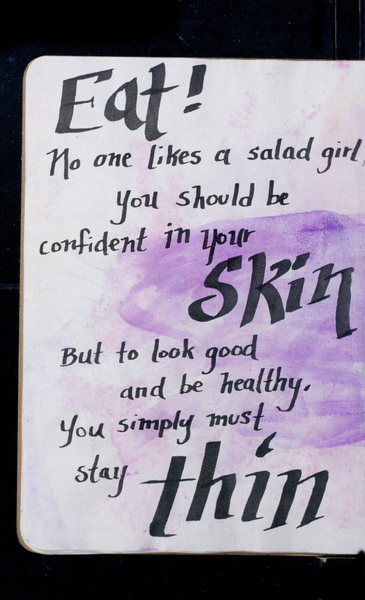 Eat!
No one likes a salad girl,
you should be
confident in your
skin
But to look good
and be healthy.
You simply must
stay thin